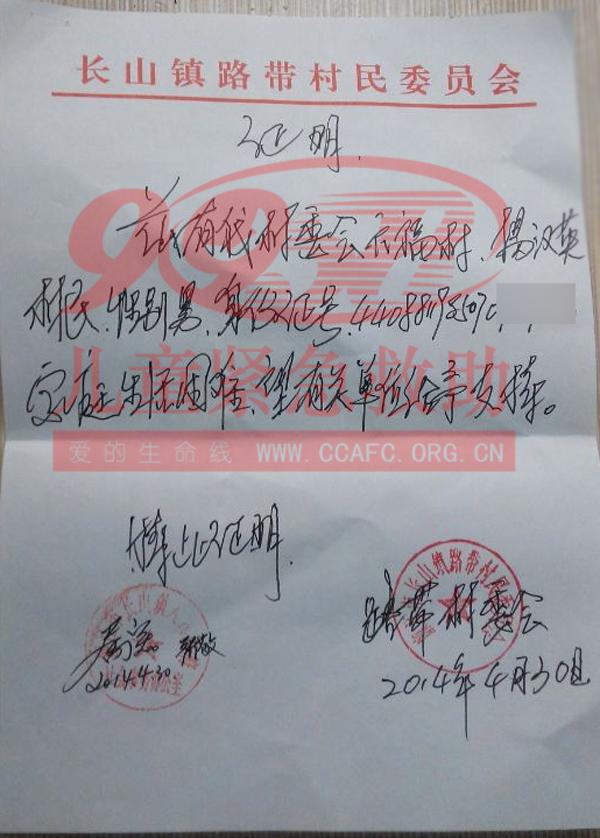 长山镇路带村民委员会
证明
兹有我村委会下福村、杨汉英
村民、性别男、身份证号、440881198507
家庭生活困难、望有关单位给予支持。
99
儿童紧急救助
爱的生命线 WWW.CCAFC.ORG.CN
特此证明
长山镇路带村民委员会
路带村委会
2014年4月30日
属实。
2014.4.30